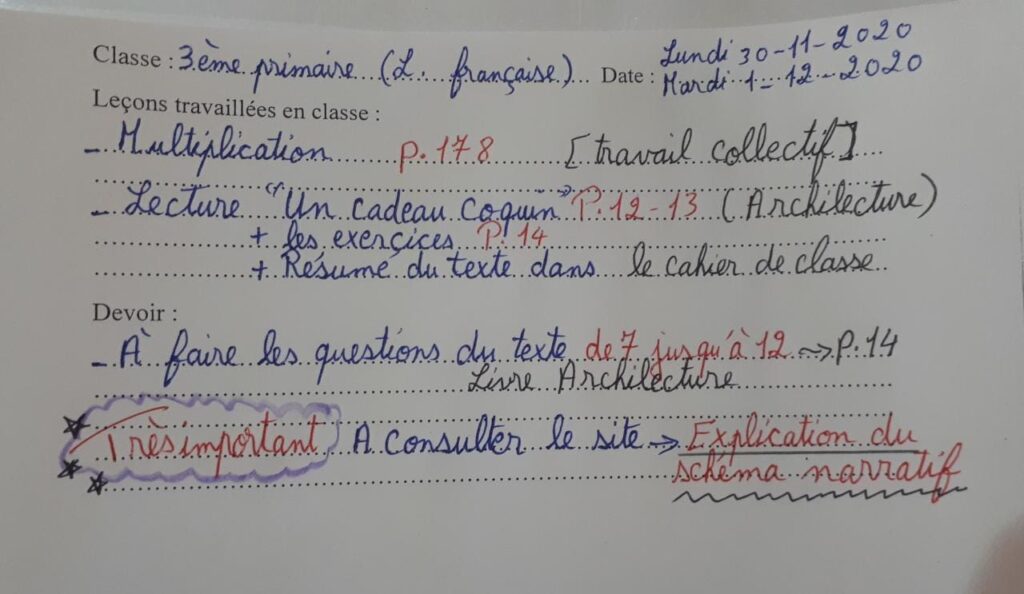 Classe : 3ème primaire (L. française) Date : Lundi 30-11-2020
Mardi 1-12-2020
Leçons travaillées en classe :
- Multiplication p.178 [travail collectif]
- Lecture "Un cadeau coquin" P.12-13 (Archilecture)
+ les exerçices P.14
+ Résumé du texte dans le cahier de classe
Devoir :
- À faire les questions du texte de 7 jusqu'à 12 → p.14
Livre Archilecture
Très important A consulter le site → Explication du
schéma narratif